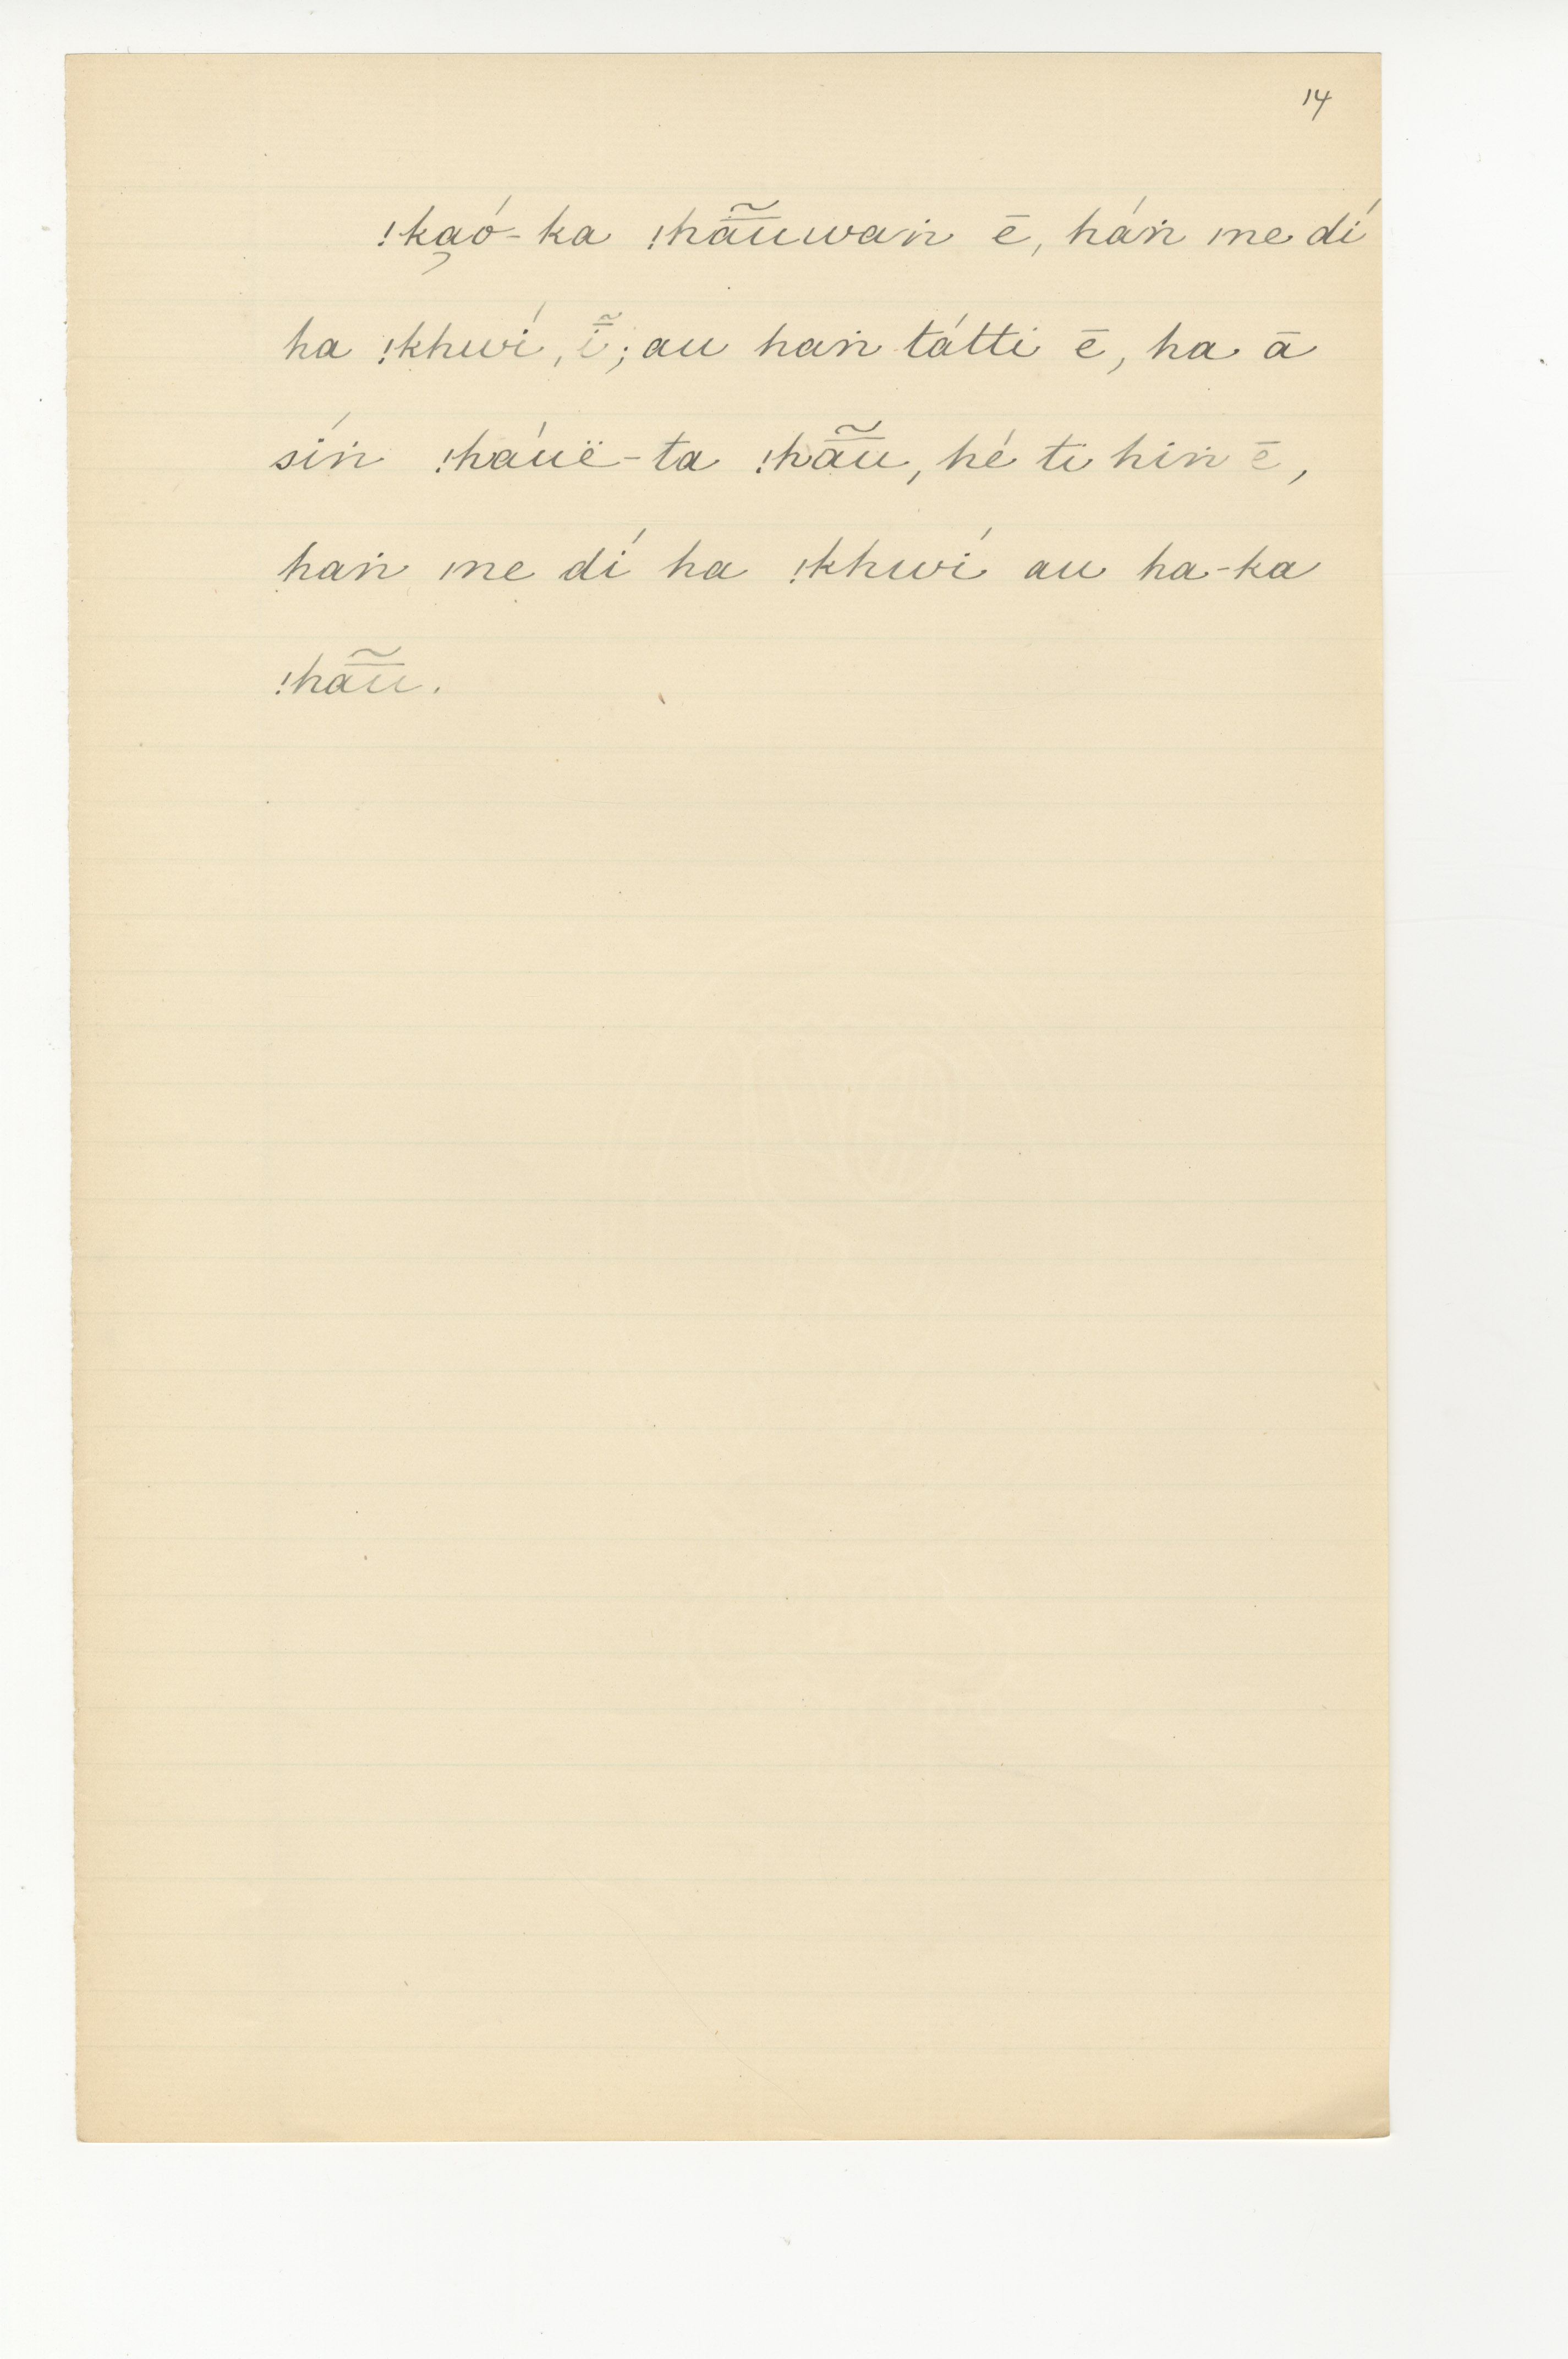 14
!ka̡ó-ka !hã̄ū́waṅ ē, háṅ me dí
ha !khwí, ī̃; au haṅ tátti ē, ha ā
síṅ !háuë-ta !hã̄ū, hé ti hiṅ ē,
haṅ me dí ha !khwí au ha-ka
!hã̄ū.